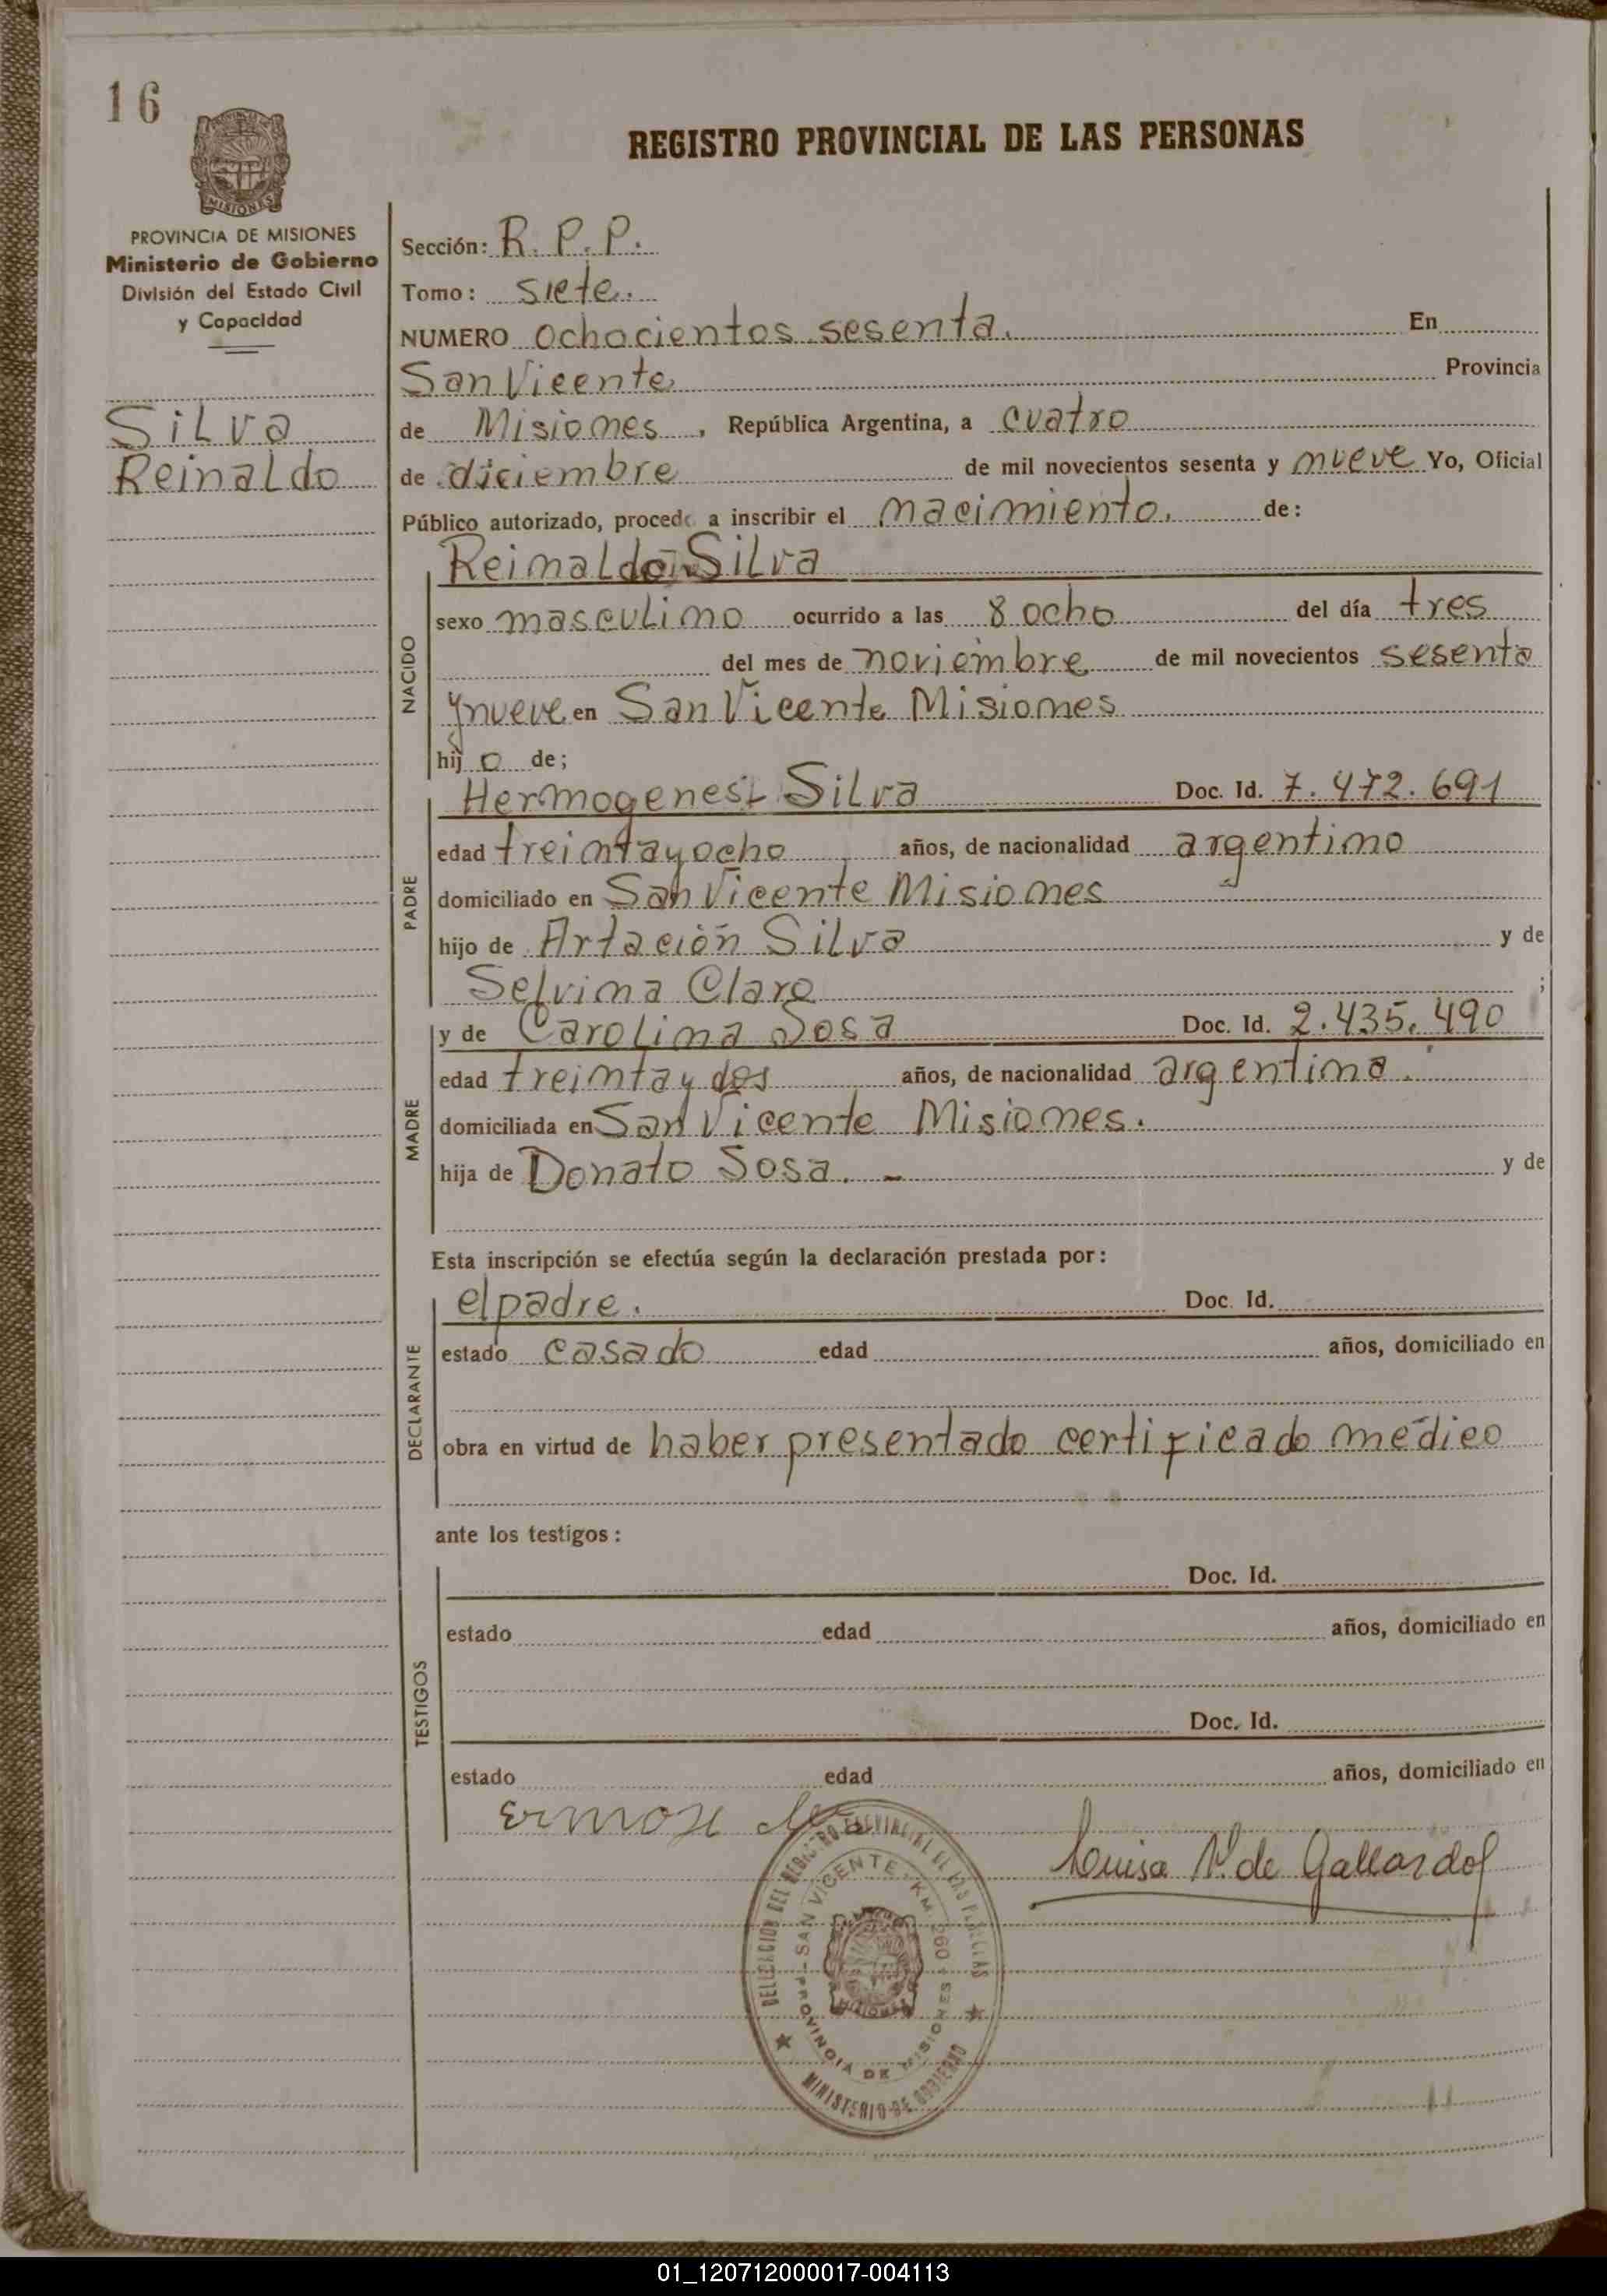 16
REGISTRO PROVINCIAL DE LAS PERSONAS
MISIONES
PROVINCIA DE MISIONES
Ministerio de Gobierno
División del Estado Civil
y Capacidad
Silva
Reinaldo
Sección: R. P. P.
Tomo: siete.
NUMERO ochocientos sesenta. En
San Vicente Provincia
de Misiones, República Argentina, a cuatro
de diciembre de mil novecientos sesenta y nueve Yo, Oficial
Público autorizado, procedo a inscribir el nacimiento. de:
NACIDO
Reinaldo Silva
sexo masculino ocurrido a las 8 ocho del día tres
del mes de noviembre de mil novecientos sesenta
y nueve en San Vicente Misiones
hijo de;
PADRE
Hermogenes Silva Doc. Id. 7.472.691
edad treinta y ocho años, de nacionalidad argentino
domiciliado en San Vicente Misiones
hijo de Artación Silva y de
Selvina Claro ;
MADRE
y de Carolina Sosa Doc. Id. 2.435.490
edad treinta y dos años, de nacionalidad argentina.
domiciliada en San Vicente Misiones.
hija de Donato Sosa. - y de
Esta inscripción se efectúa según la declaración prestada por:
DECLARANTE
el padre. Doc. Id.
estado casado edad años, domiciliado en
obra en virtud de haber presentado certificado médico
ante los testigos:
TESTIGOS
Doc. Id.
estado edad años, domiciliado en
Doc. Id.
estado edad años, domiciliado en
Luisa de Gallardo
SAN VICENTE - KM. 260
PROVINCIA DE MISIONES
MINISTERIO DE GOBIERNO
01_120712000017-004113